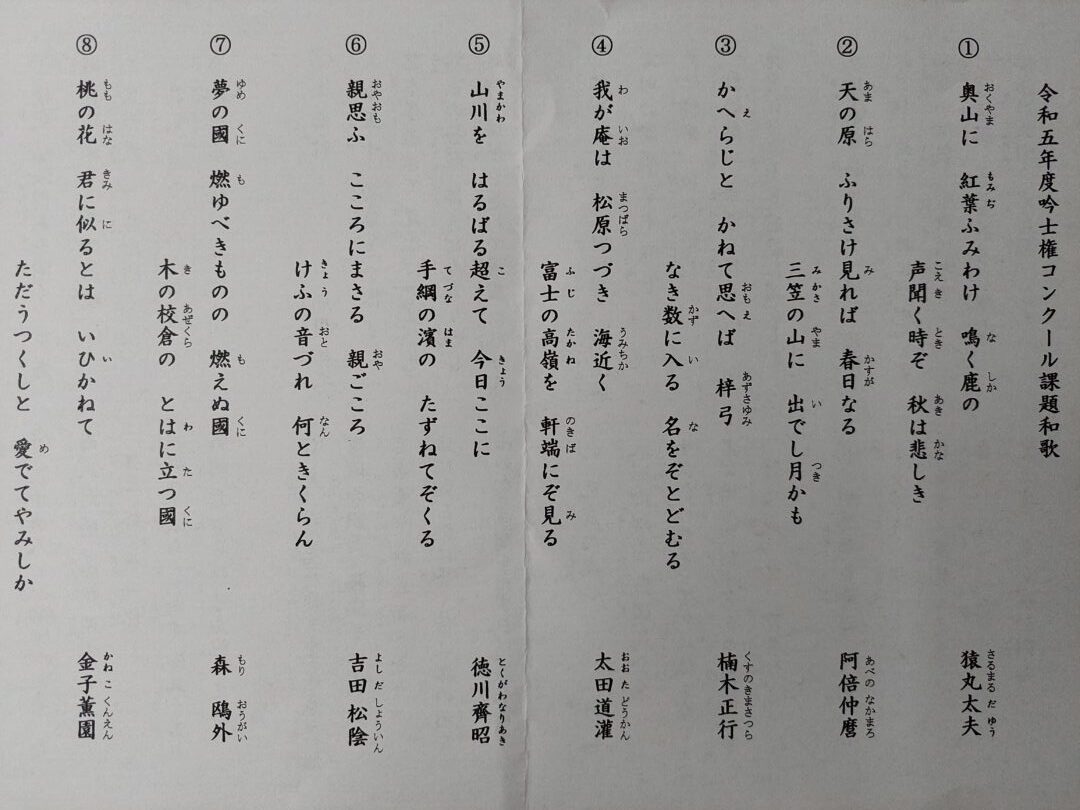 令和五年度吟士権コンクール課題和歌
① 奥山に 紅葉ふみわけ 鳴く鹿の
声聞く時ぞ 秋は悲しき 猿丸太夫
② 天の原 ふりさけ見れば 春日なる
三笠の山に 出でし月かも 阿倍仲麿
③ かへらじと かねて思へば 梓弓
なき数に入る 名をぞとどむる 楠木正行
④ 我が庵は 松原つづき 海近く
富士の高嶺を 軒端にぞ見る 太田道灌
⑤ 山川を はるばる超えて 今日ここに
手綱の濱の たずねてぞくる 徳川齊昭
⑥ 親思ふ こころにまさる 親ごころ
けふの音づれ 何ときくらん 吉田松陰
⑦ 夢の國 燃ゆべきものの 燃えぬ國
木の校倉の とはに立つ國 森 鴎外
⑧ 桃の花 君に似るとは いひかねて
ただうつくしと 愛でてやみしか 金子薫園